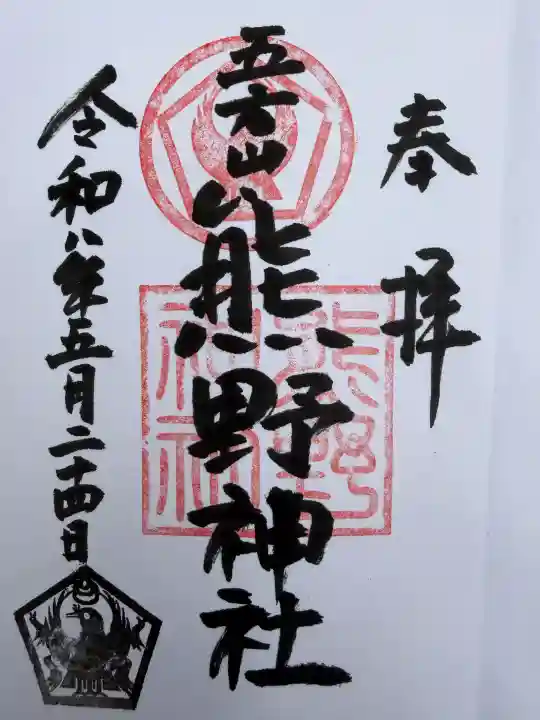 奉拝
五方山熊野神社
熊野
神社
令和八年五月二十四日